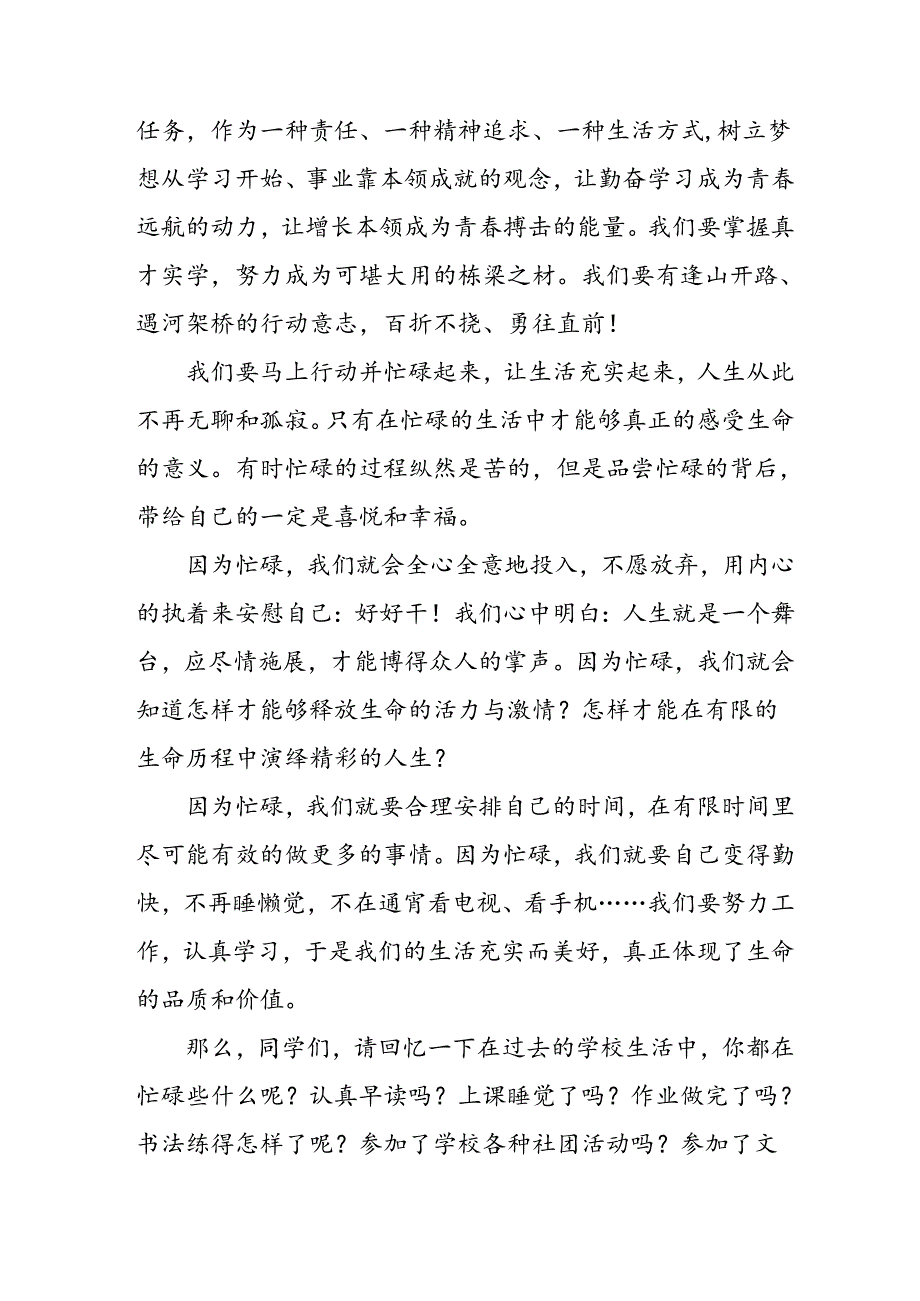 任务，作为一种责任、一种精神追求、一种生活方式,树立梦
想从学习开始、事业靠本领成就的观念，让勤奋学习成为青春
远航的动力，让增长本领成为青春搏击的能量。我们要掌握真
才实学，努力成为可堪大用的栋梁之材。我们要有逢山开路、
遇河架桥的行动意志，百折不挠、勇往直前！
我们要马上行动并忙碌起来，让生活充实起来，人生从此
不再无聊和孤寂。只有在忙碌的生活中才能够真正的感受生命
的意义。有时忙碌的过程纵然是苦的，但是品尝忙碌的背后，
带给自己的一定是喜悦和幸福。
因为忙碌，我们就会全心全意地投入，不愿放弃，用内心
的执着来安慰自己：好好干！我们心中明白：人生就是一个舞
台，应尽情施展，才能博得众人的掌声。因为忙碌，我们就会
知道怎样才能够释放生命的活力与激情？怎样才能在有限的
生命历程中演绎精彩的人生？
因为忙碌，我们就要合理安排自己的时间，在有限时间里
尽可能有效的做更多的事情。因为忙碌，我们就要自己变得勤
快，不再睡懒觉，不在通宵看电视、看手机……我们要努力工
作，认真学习，于是我们的生活充实而美好，真正体现了生命
的品质和价值。
那么，同学们，请回忆一下在过去的学校生活中，你都在
忙碌些什么呢？认真早读吗？上课睡觉了吗？作业做完了吗？
书法练得怎样了呢？参加了学校各种社团活动吗？参加了文